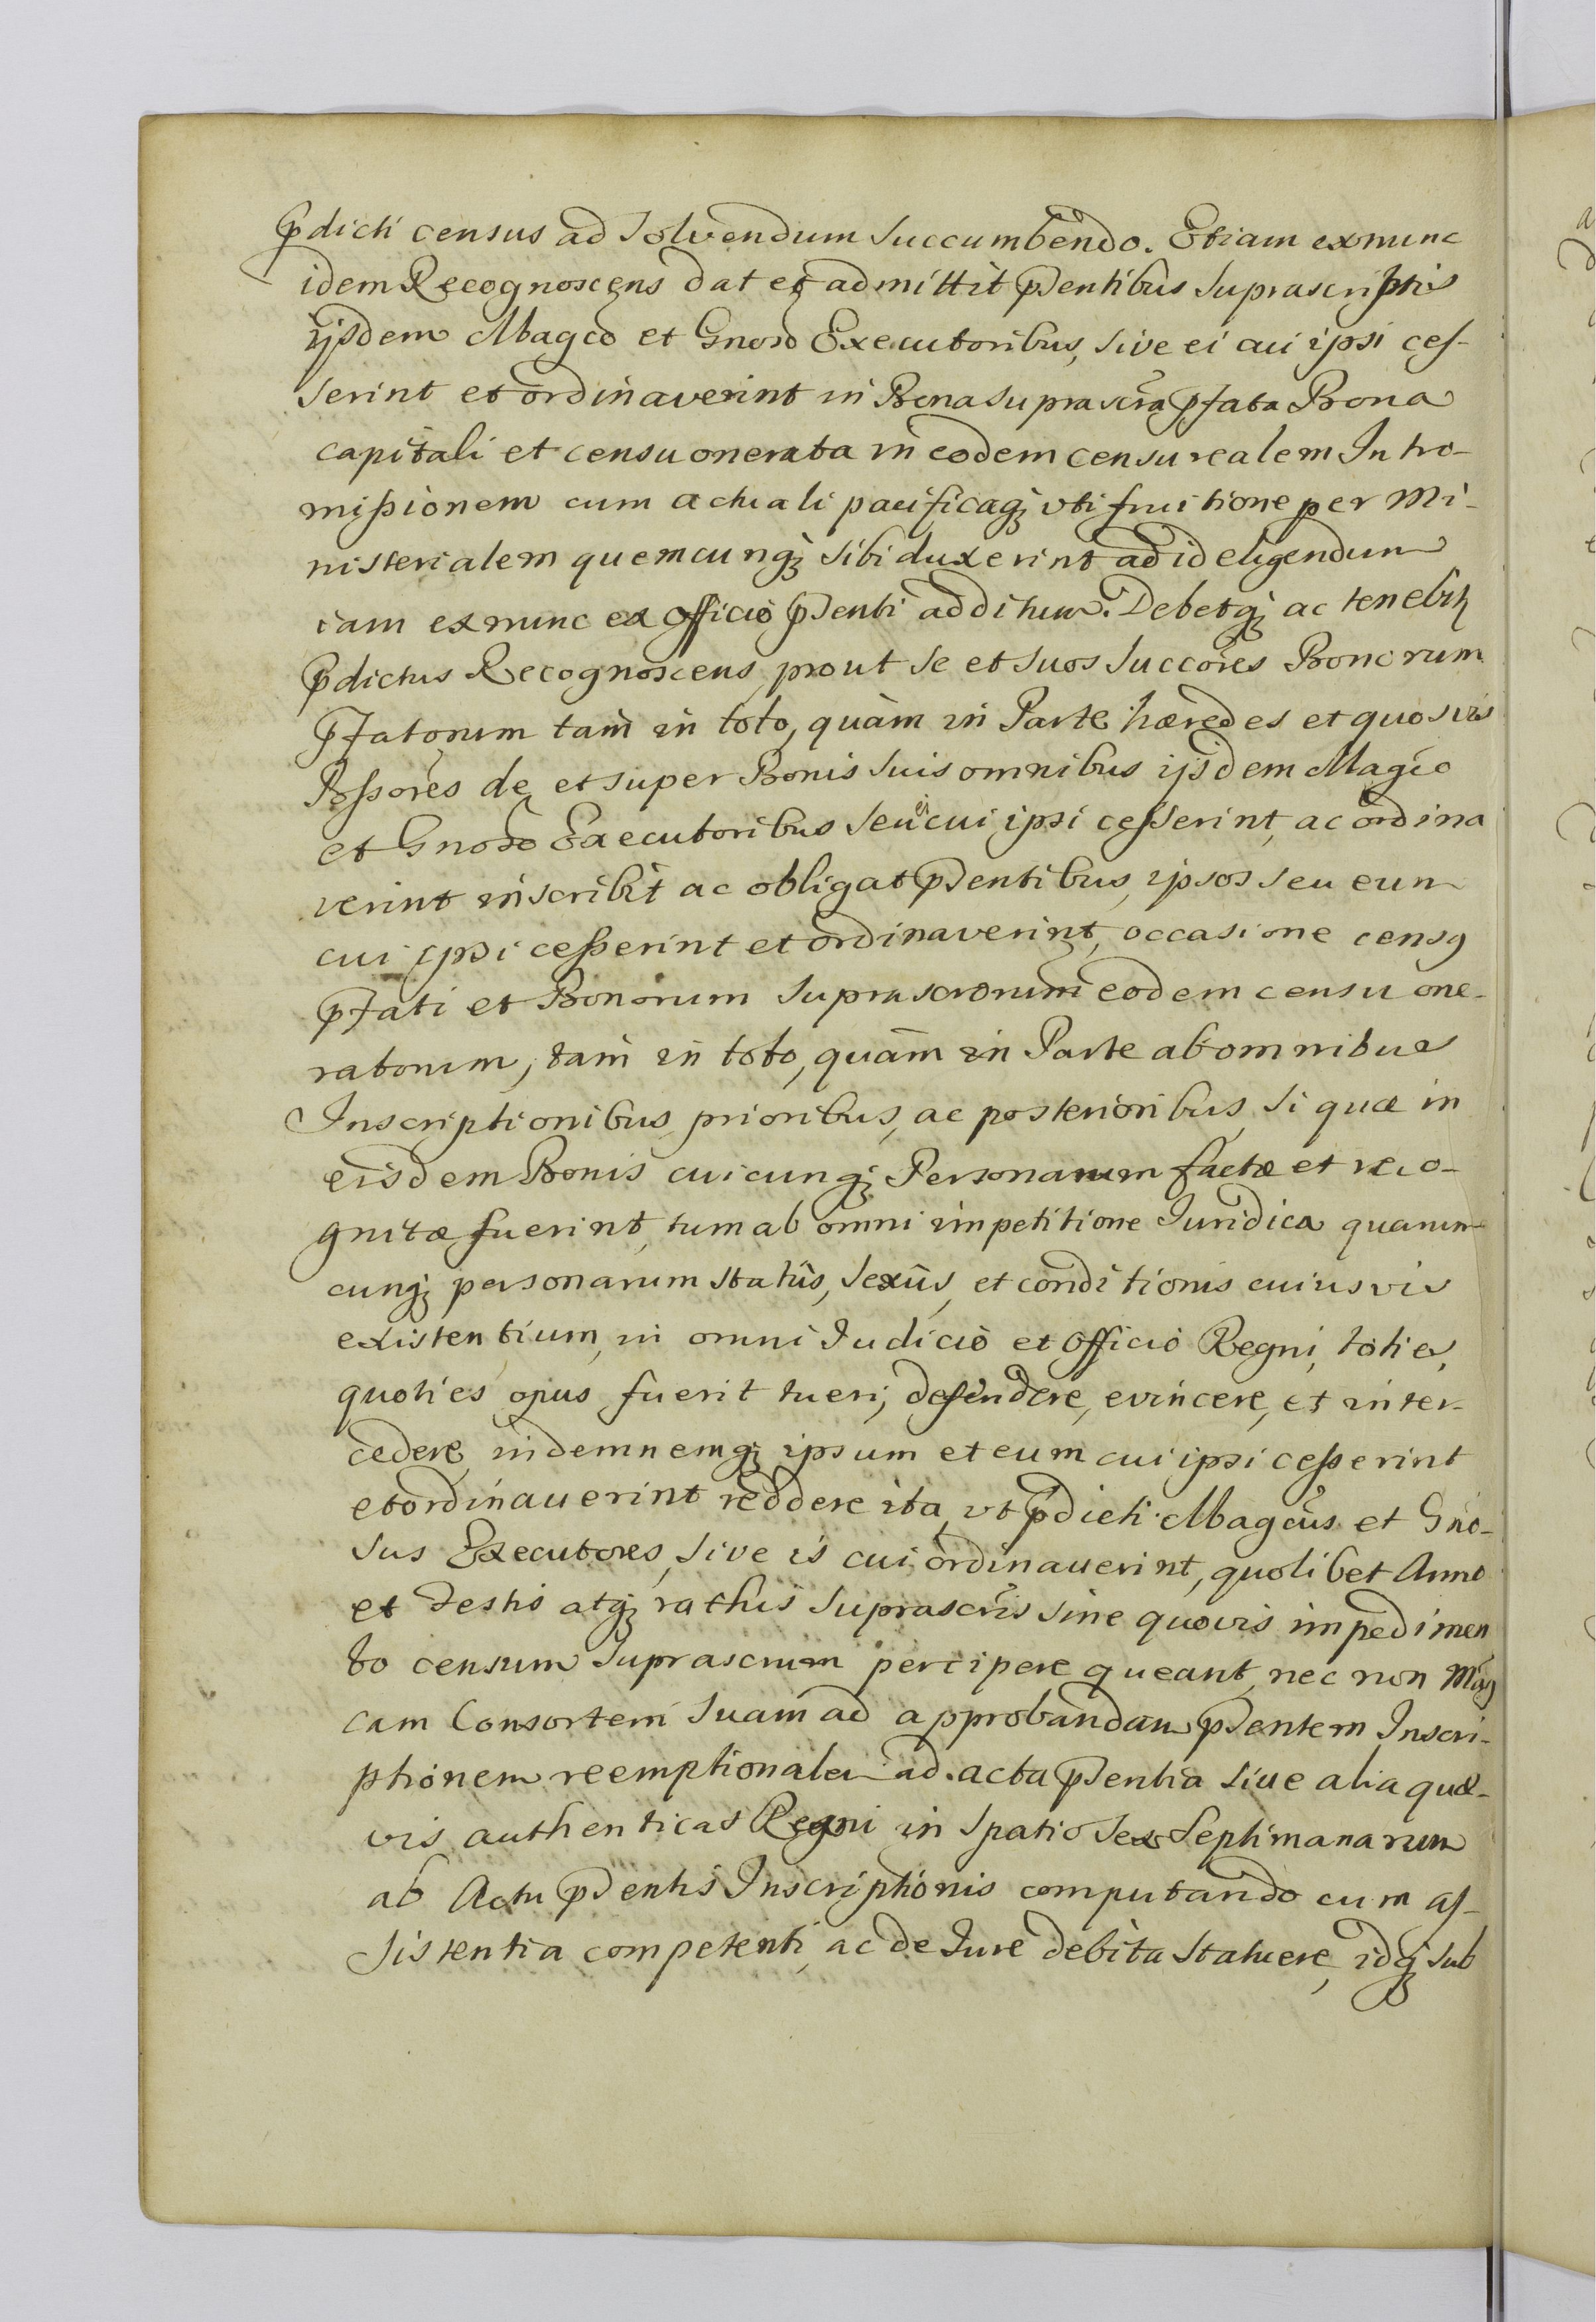 p̄dicti census ad solvendum succumbendo. Etiam exnunc
idem Recognoscens dat et admittit p̄sentibus suprascriptis
ijsdem Magco et Gnoso Executoribus, sive ei cui ipsi ces-
serint et ordinaverint in Bona suprascra p̄fata Bona
capitali et censu onerata in eodem censu realem Intro-
missionem cum actuali pacificaq; utifruitione per Mi-
nisterialem quemcunq; sibi duxerint ad id eligendum
iam exnunc ex officio p̄senti additum. Debetq; ac tenebit
p̄dictus Recognoscens, prout se et suos succores Bonorum
p̄fatorum tam in toto, quàm in Parte hæredes et quosvis
Possores de et super Bonis suis omnibus ijsdem Magco
et Gnoso Executoribus seu ei cui ipsi cesserint, ac ordina
verint inscribit ac obligat p̄sentibus, ipsos seu eum
cui ipsi cesserint et ordinaverint, occasione censq
p̄fati et Bonorum suprascrorum eodem censu one-
ratorum, tam in toto, quàm in Parte ab omnibus
Inscriptionibus prioribus, ac posterioribus, si quæ in
eisdem Bonis cuicunq; Personarum factæ et reco-
gnitæ fuerint, tum ab omni impetitione Iuridica quarum-
cunq; personarum statûs, sexûs, et conditionis cuiusvis
existentium, in omni Iudicio et Officio Regni, toties,
quoties opus fuerit tueri, defendere, evincere, et inter-
cedere, indemnemq; ipsum et eum cui ipsi cesserint
et ordinauerint reddere ita, vt p̄dicti Magcus et Gno-
sus Executores, sive is cui ordinauerint, quolibet Anno
et Festis atq; rathis suprascris sine quovis impedimen
to censum suprascrum percipere queant, nec non Mag
cam Consortem suam ad approbandam p̄sentem Inscri-
ptionem reemptionalem ad acta p̄sentia siue alia quæ-
vis authenticas Regni in spatio sex Septimanarum
ab Actu p̄sentis Inscriptionis computando cum as-
sistentia competenti, ac de Iure debita statuere, idq; sub